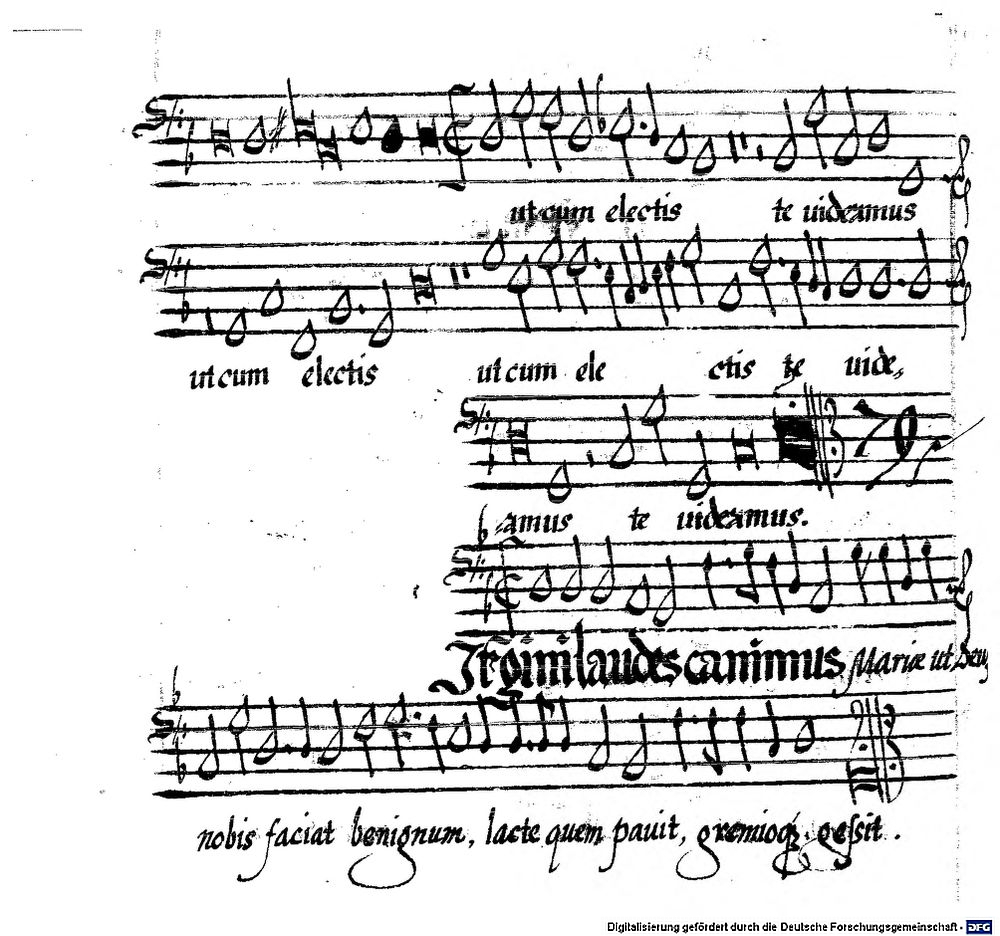 ut cum electis te uideamus
ut cum electis ut cum ele ctis te uide,
amus te uideamus.
laudes canimus Mariæ ut Deus
nobis faciat benignum, lacte quem pauit, gremioq₃ gessit.
Digitalisierung gefördert durch die Deutsche Forschungsgemeinschaft - DFG